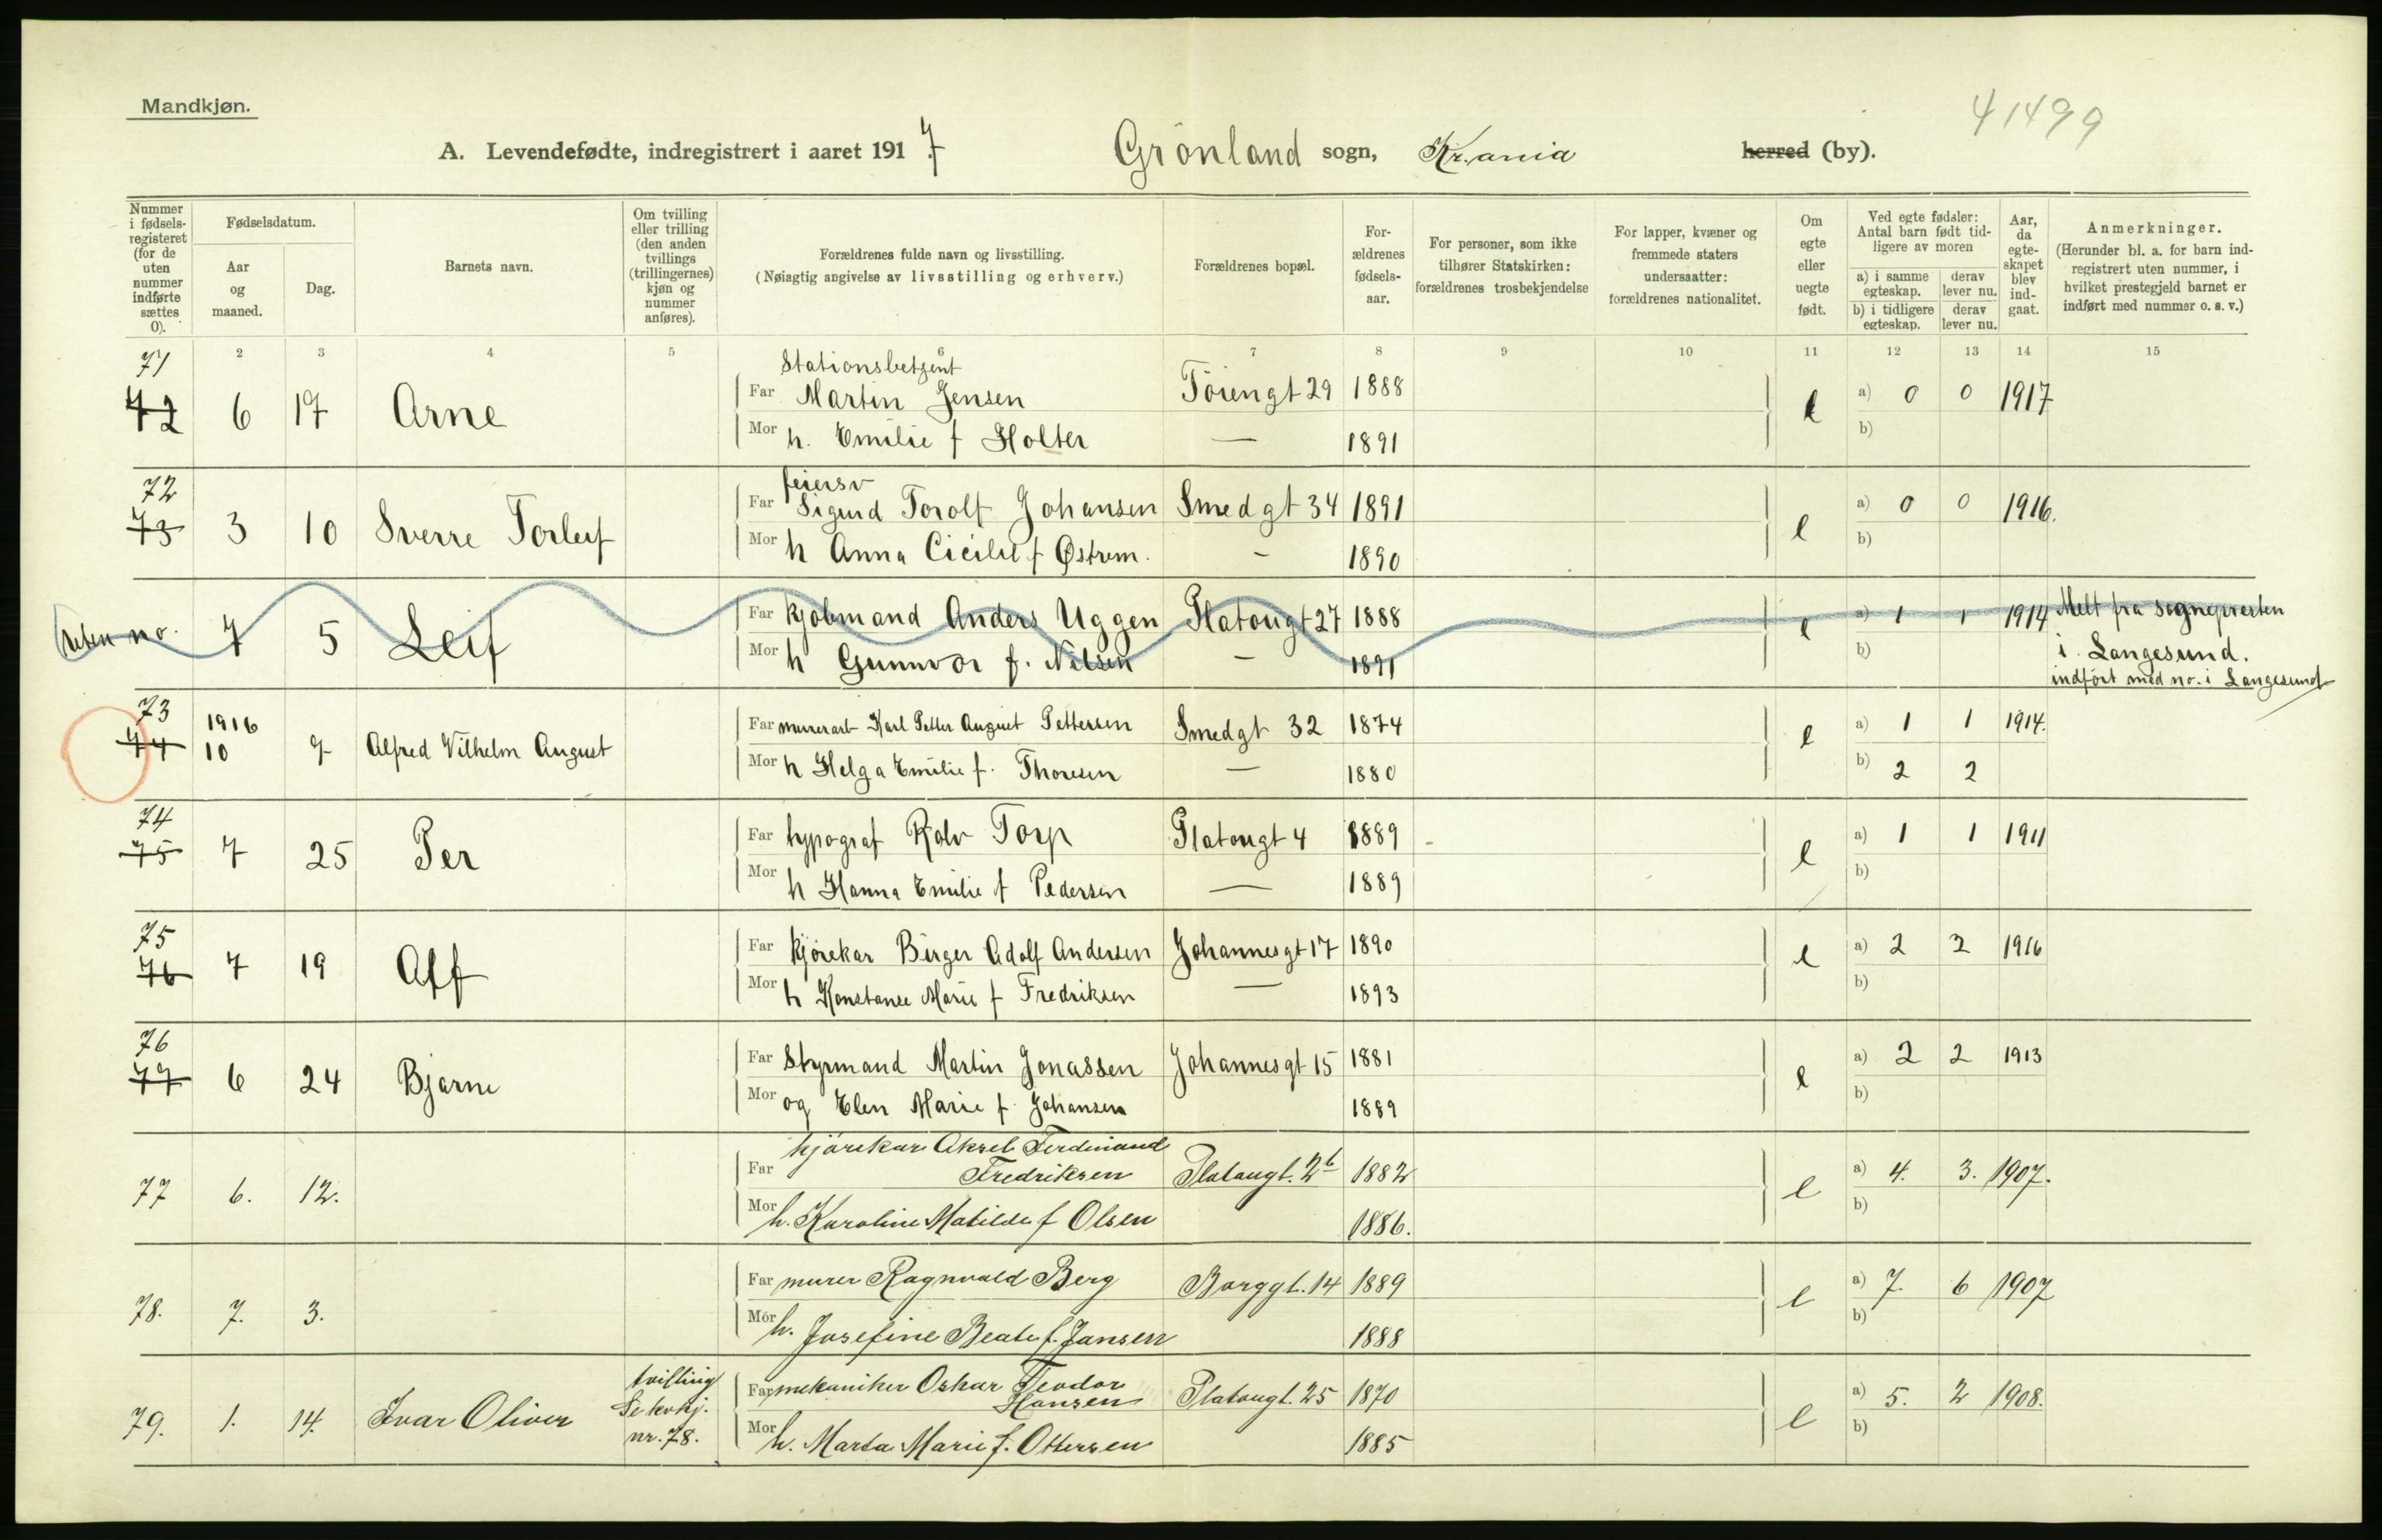 Mandkjøn.
41499
A. Levendefødte, indregistrert i aaret 1917. Grönland sogn, Kr.ania herred (by).
Nummer i fødsels-registeret (for de uten nummer indførte sættes 0).
Fødselsdatum.
Aar og maaned.
Dag.
Barnets navn.
Om tvilling eller trilling (den anden tvillings (trillingernes) kjøn og nummer anføres).
Forældrenes fulde navn og livsstilling.
(Nøiagtig angivelse av livsstilling og erhverv.)
Forældrenes bopæl.
For-ældrenes fødsels-aar.
For personer, som ikke tilhører Statskirken: forældrenes trosbekjendelse
For lapper, kvæner og fremmede staters undersaatter: forældrenes nationalitet.
Om egte eller uegte født.
Ved egte fødsler: Antal barn født tid-ligere av moren
a) i samme egteskap. derav lever nu.
b) i tidligere egteskap. derav lever nu.
Aar, da egte-skapet blev ind-gaat.
Anmerkninger.
(Herunder bl. a. for barn ind-registrert uten nummer, i hvilket prestegjeld barnet er indført med nummer o. s. v.)
2 3 4 5 6 7 8 9 10 11 12 13 14 15
71 Stationsbetjent
72 6 17 Arne Far Martin Jensen Töiengt 29 1888 e a) 0 0 1917
Mor h. Emilie f Holter — 1891 b)
72 feiersv
73 3 10 Sverre Torleif Far Sigurd Torolf Johansen Smedgt 34 1891 e a) 0 0 1916.
Mor h Anna Cicilie f Østrem. - 1890 b)
uten no. 7 5 Leif Far kjöbmand Anders Uggen Platougt 27 1888 e a) 1 1 1914 Melt fra sognepresten
Mor h Gunnvor f. Nilsen - 1891 b) i Langesund.
indfört med no. i Langesund
73 1916
74 10 7 Alfred Vilhelm August Far murerarb Karl Petter August Pettersen Smedgt 32 1874 e a) 1 1 1914.
Mor h Helga Emilie f. Thoresen — 1880 b) 2 2
74
75 7 25 Per Far typograf Rolv Torp Platougt 4 1889 e a) 1 1 1911
Mor h Hanna Emilie f Pedersen — 1889 b)
75
76 7 19 Alf Far kjörekar Birger Adolf Andersen Johannesgt 17 1890 e a) 2 2 1916
Mor h Konstanse Marie f Fredriksen — 1893 b)
76
77 6 24 Bjarne Far Styrmand Martin Jonassen Johannesgt 15 1881 e a) 2 2 1913
Mor og Elen Marie f. Johansen 1889 b)
kjörekar Aksel Ferdinand
77 6. 12. Far Fredriksen Platougt. 2b 1882 e a) 4. 3. 1907.
Mor h. Karoline Matilde f Olsen 1886. b)
78. 7. 3. Far murer Ragnvald Berg Borggt. 14 1889 e a) 7. 6 1907
Mor h. Josefine Beate f. Jansen 1888 b)
79. 1. 14. Ivar Oliver tvilling Se kvkj. nr. 78. Far mekaniker Oskar Teodor Hansen Platougt. 25 1870 e a) 5. 2 1908.
Mor h. Marta Marie f. Ottersen 1885 b)